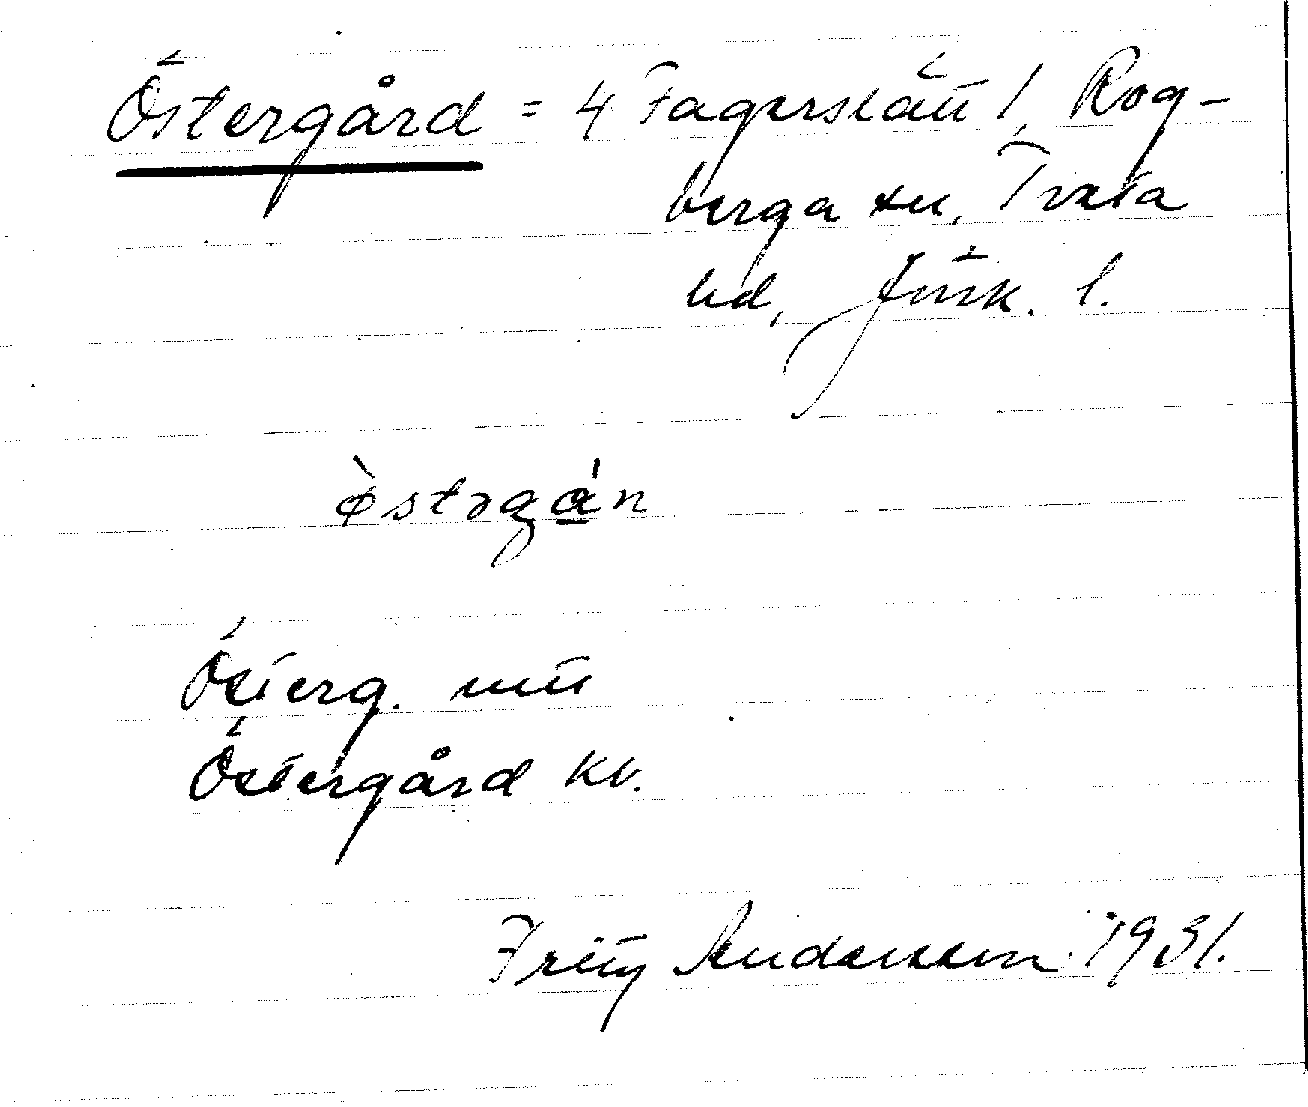 Östergård = 4 Fagerslätt 1, Rog-
berga sn, Tveta
hd, Jönk. l.
östərgån
Österg. utn
Östergård kv.
Fritz Andersson 1931.